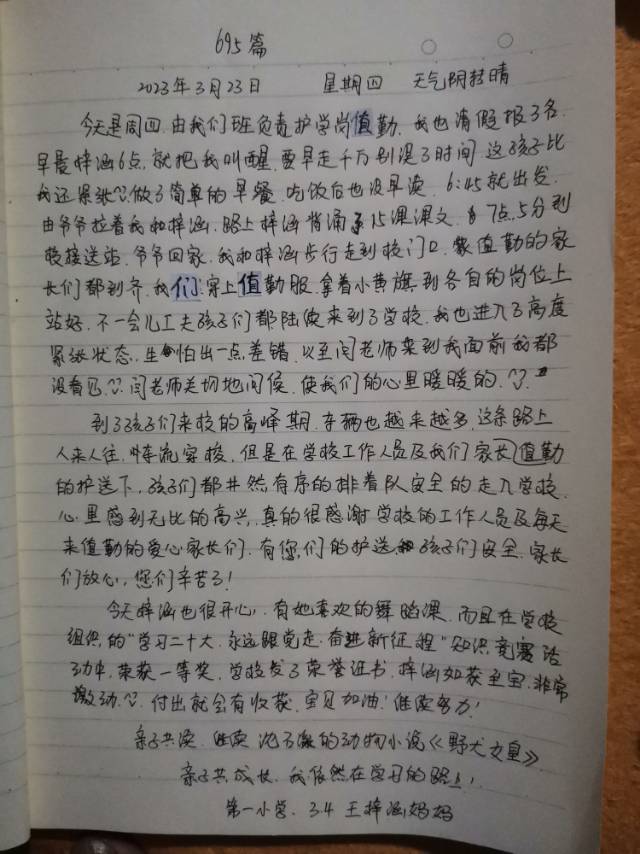 695篇
2023年3月23日 星期四 天气阴转晴
今天是周四,由我们班负责护学岗值勤,我也请假报了名.
早晨梓涵6点,就把我叫醒,要早走千万别误了时间.这孩子比
我还紧张^^.做了简单的早餐.吃饭后也没早读,6:45就出发.
由爷爷拉着我和梓涵,路上梓涵背诵了15课课文.7点5分到
校接送站.爷爷回家,我和梓涵步行走到校门口.值勤的家
长们都到齐,我们穿上值勤服.拿着小黄旗到各自的岗位上
站好,不一会儿工夫孩子们都陆续来到了学校,我也进入了高度
紧张状态,生怕出一点差错,以至闫老师来到我面前我都
没看见^^.闫老师关切地问候,使我们的心里暖暖的.^^
到了孩子们来校的高峰期.车辆也越来越多,这条路上
人来人往,川流穿梭,但是在学校工作人员及我们家长值勤
的护送下,孩子们都井然有序的排着队安全的走入学校.
心里感到无比的高兴,真的很感谢学校的工作人员及每天
来值勤的爱心家长们.有您们的护送,孩子们安全.家长
们放心,您们辛苦了!
今天梓涵也很开心,有她喜欢的舞蹈课.而且在学校
组织的"学习二十大,永远跟党走,奋进新征程"知识竞赛活
动中,荣获一等奖,学校发了荣誉证书,梓涵如获至宝.非常
激动^^.付出就会有收获,宝贝加油!继续努力!
亲子共读,继续沈石溪的动物小说《野犬女皇》
亲子共成长,我依然在学习的路上!
第一小学.3.4 王梓涵妈妈